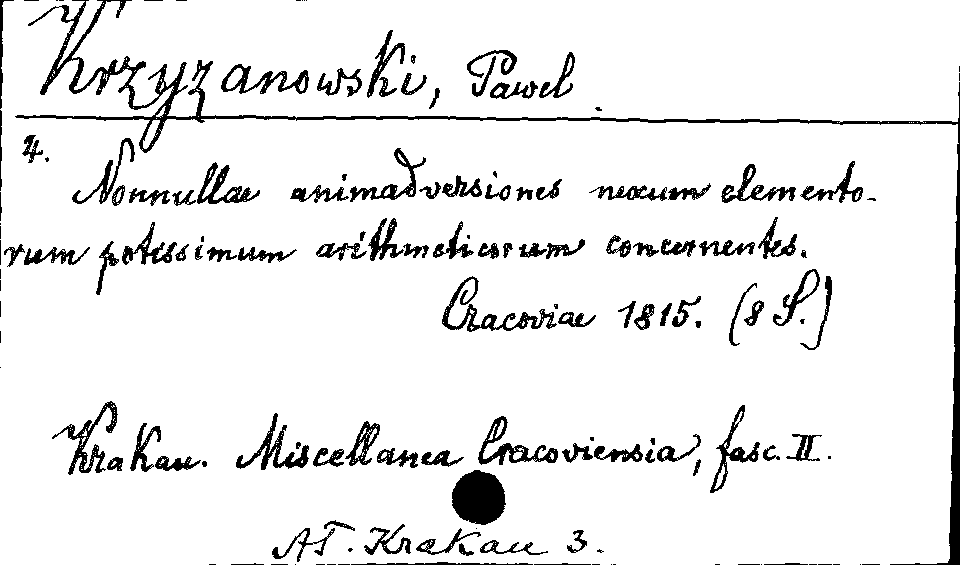 Krzyzanowski, Pawel.
4.
Nonnullae animadversiones nexum elemento-
rum potissimum arithmeticorum concernentes.
Cracoviae 1815. (8 S.)
Krakau. Miscellanea Cracoviensia, fasc. II.
AT. Krakau 3.